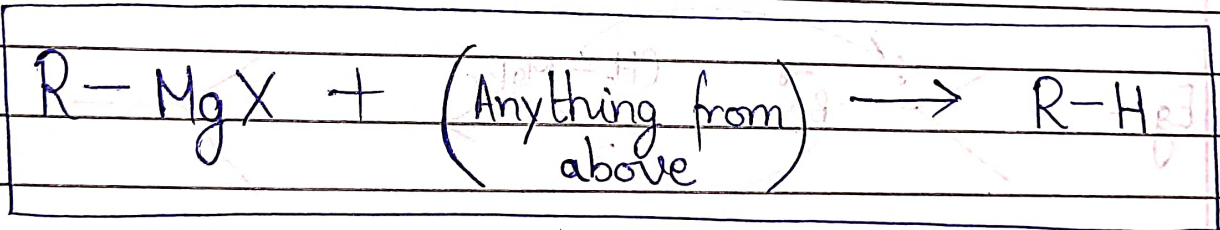 R - MgX + (Anything from above) ⟶ R-H